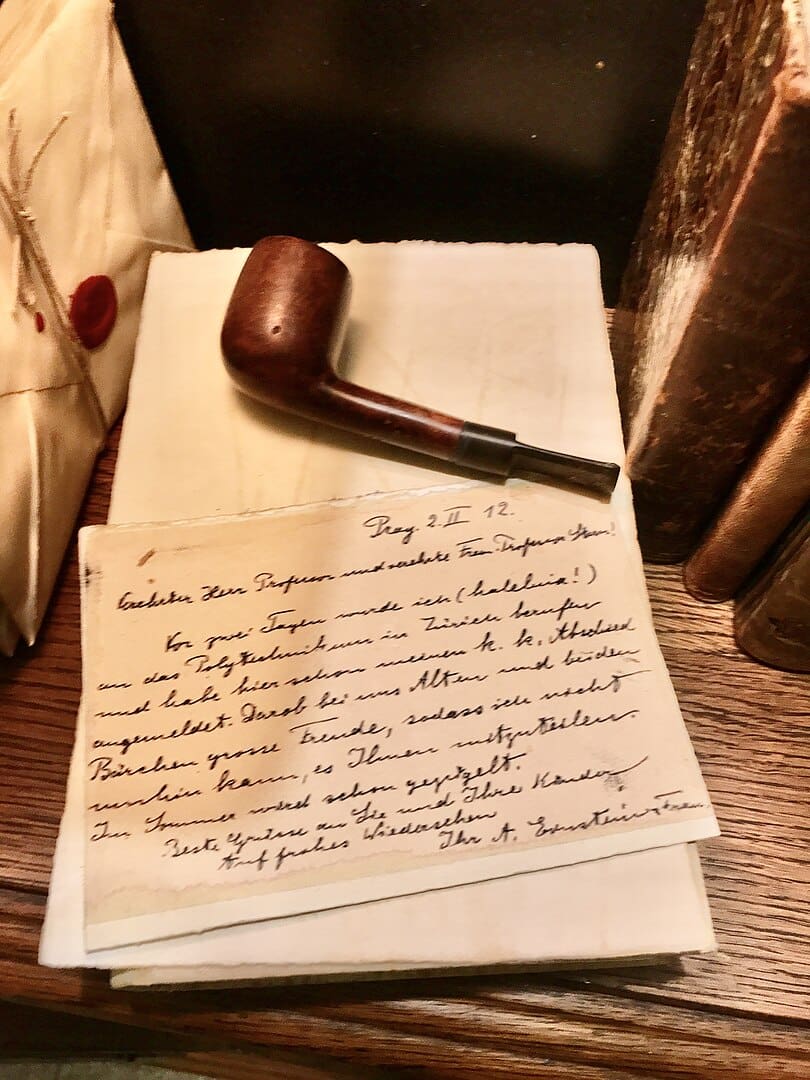 Prag. 2. II 12.
Geehrter Herr Professor und verehrte Frau Professor Stern!
Vor zwei Tagen wurde ich (haleluia!)
an das Polytechnikum in Zürich berufen
und habe hier schon meinen k. k. Abschied
angemeldet. Darob bei uns Alten und beiden
Bärchen grosse Freude, sodass ich nicht
umhin kann, es Ihnen mitzuteilen.
Im Sommer wird schon gezügelt.
Beste Grüsse an Sie und Ihre Kinder
Auf frohes Wiedersehen
Ihr A. Einstein & Frau.